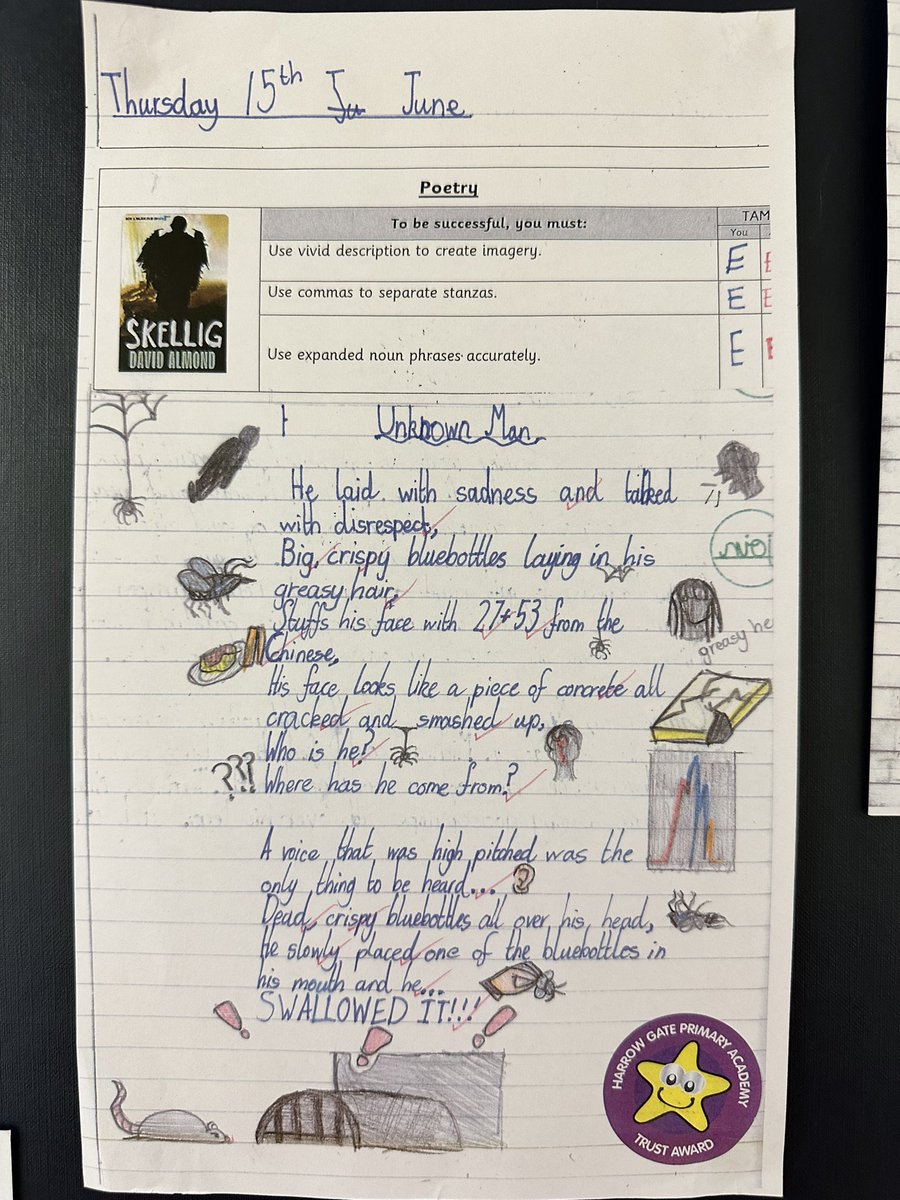 Thursday 15th Ju June
Poetry
To be successful, you must:
TAM
You
Use vivid description to create imagery.
E
E
Use commas to separate stanzas.
E
E
Use expanded noun phrases accurately.
E
E
SKELLIG
DAVID ALMOND
Unknown Man
He laid with sadness and talked
with disrespect,
Big, crispy bluebottles laying in his
greasy hair,
greasy he
Stuffs his face with 27+53 from the
Chinese,
His face looks like a piece of concrete all
cracked and smashed up,
Who is he?
??? Where has he come from?
A voice that was high pitched was the
only thing to be heard...
Dead, crispy bluebottles all over his head,
He slowly placed one of the bluebottles in
his mouth and he...
SWALLOWED IT!!!
HARROW GATE PRIMARY ACADEMY
TRUST AWARD